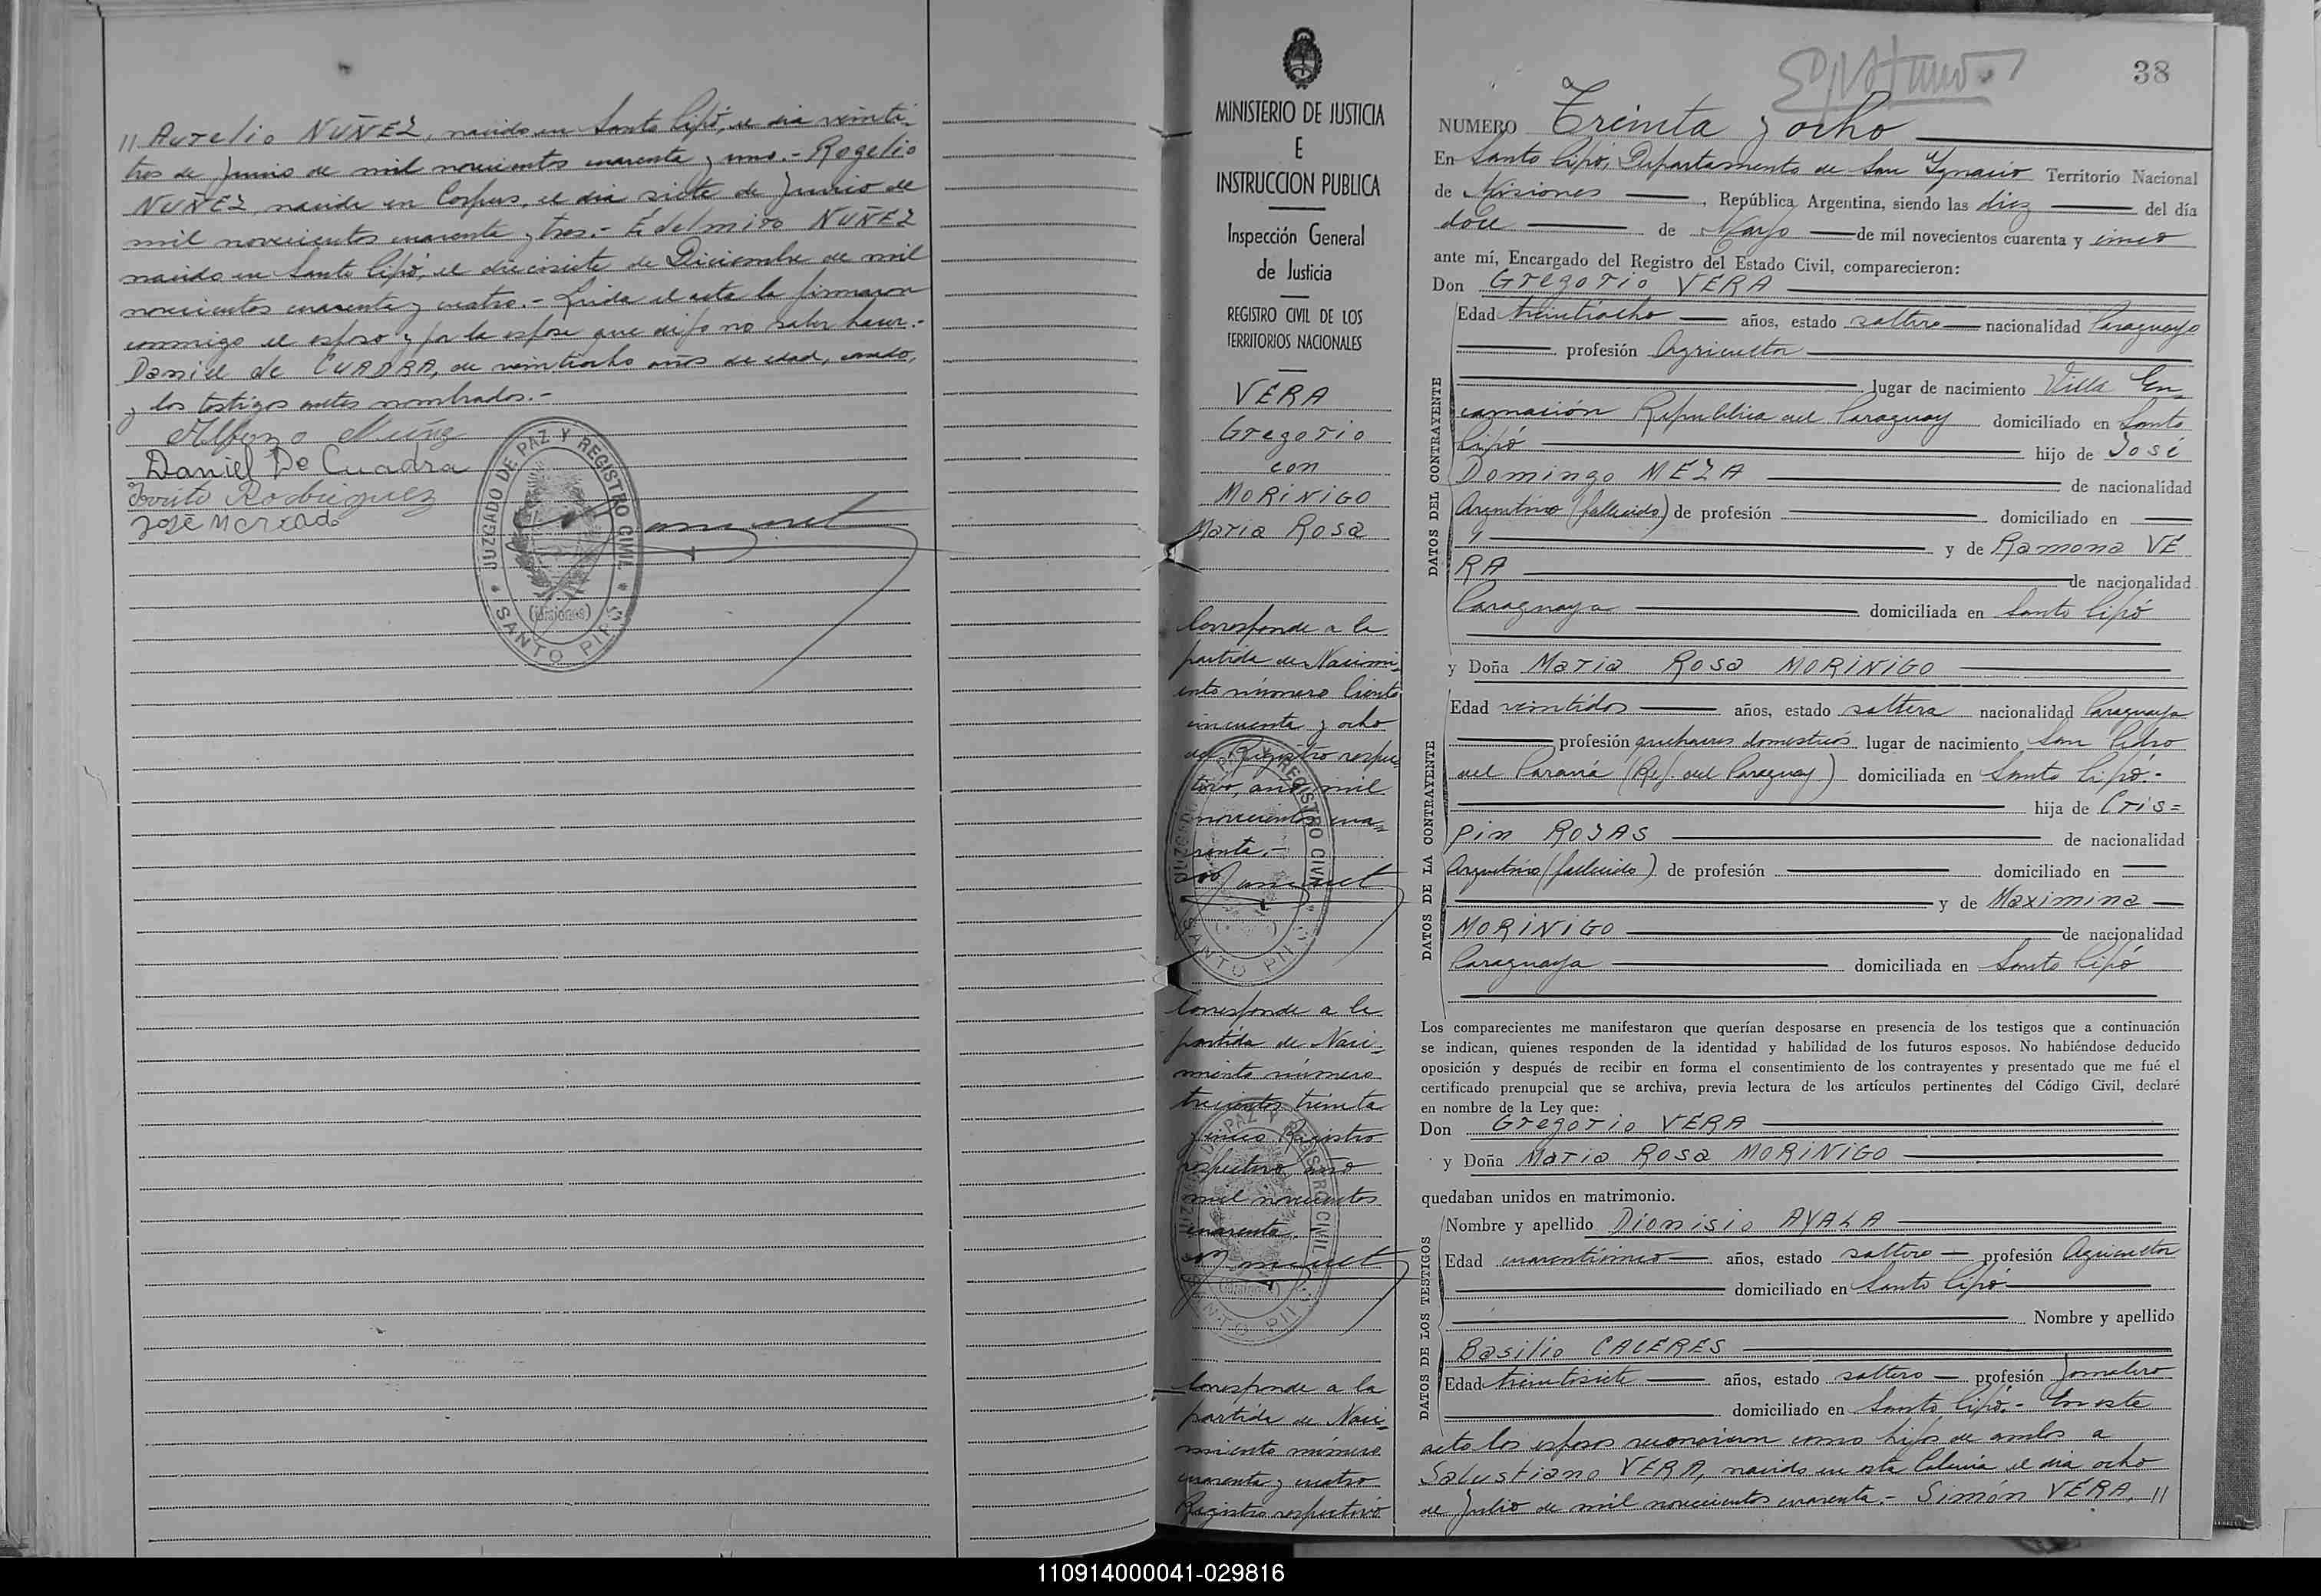 // Aurelio NUÑEZ, nacido en Santo Pipó, el dia veinti-
tres de Junio de mil novecientos cuarenta y uno.- Rogelio
NUÑEZ, nacido en Corpus, el dia siete de Junio de
mil novecientos cuarenta y tres.- Edelmiro NUÑEZ
nacido en Santo Pipó, el diecisiete de Diciembre de mil
novecientos cuarenta y cuatro.- Leida el acta la firmaron
conmigo el esposo y por la esposa que dijo no saber hacer.-
Daniel de CUADRA, de veintiocho años de edad, casado,
y los testigos antes nombrados.-
Alfonzo Nuñez
Daniel De Cuadra
Rodriguez
José Mercado
JUZGADO DE PAZ Y REGISTRO CIVIL
(Misiones)
SANTO PIPÓ
MINISTERIO DE JUSTICIA
E
INSTRUCCION PUBLICA
Inspección General
de Justicia
REGISTRO CIVIL DE LOS
TERRITORIOS NACIONALES
VERA
Gregorio
con
MORINIGO
Maria Rosa
Corresponde a la
partida de Nacimi-
ento número Ciento
cincuenta y ocho
del Registro respec-
tivo, año mil
novecientos cua-
renta.-
Corresponde a la
partida de Naci-
miento número
trecientos treinta
y cinco Registro
respectivo año
mil novecientos
cuarenta.
Corresponde a la
partida de Naci-
miento número
cuarenta y cuatro
Registro respectivo
38
NUMERO Treinta y ocho
En Santo Pipó, Departamento de San Ygnacio Territorio Nacional
de Misiones, República Argentina, siendo las diez del día
doce de Mayo de mil novecientos cuarenta y cinco
ante mí, Encargado del Registro del Estado Civil, comparecieron:
Don Gregorio VERA
DATOS DEL CONTRAYENTE
Edad treintiocho años, estado soltero nacionalidad Paraguayo
profesión Agricultor
lugar de nacimiento Villa En-
carnación Republica del Paraguay domiciliado en Santo
Pipó hijo de José
Domingo MEZA de nacionalidad
Argentino (fallecido) de profesión domiciliado en
y de Ramona VE
RA de nacionalidad
Paraguaya domiciliada en Santo Pipó
y Doña Maria Rosa MORINIGO
DATOS DE LA CONTRAYENTE
Edad veintidos años, estado soltera nacionalidad Paraguaya
profesión quehaceres domesticos lugar de nacimiento San Pedro
del Paraná (Rep. del Paraguay) domiciliada en Santo Pipó.-
hija de Cris=
pin ROJAS de nacionalidad
Argentino (fallecido) de profesión domiciliado en
y de Maximina
MORINIGO de nacionalidad
Paraguaya domiciliada en Santo Pipó
Los comparecientes me manifestaron que querían desposarse en presencia de los testigos que a continuación
se indican, quienes responden de la identidad y habilidad de los futuros esposos. No habiéndose deducido
oposición y después de recibir en forma el consentimiento de los contrayentes y presentado que me fué el
certificado prenupcial que se archiva, previa lectura de los artículos pertinentes del Código Civil, declaré
en nombre de la Ley que:
Don Gregorio VERA
y Doña Maria Rosa MORINIGO
quedaban unidos en matrimonio.
DATOS DE LOS TESTIGOS
Nombre y apellido Dionisio AYALA
Edad cuarenticinco años, estado soltero profesión Agricultor
domiciliado en Santo Pipó
Nombre y apellido
Basilio CACERES
Edad treintisiete años, estado soltero profesión Jornalero
domiciliado en Santo Pipó.- En este
acto los esposos reconocieron como hijos de ambos a
Salustiano VERA, nacido en esta Colonia el dia ocho
de Julio de mil novecientos cuarenta.- Simón VERA, //
110914000041-029816